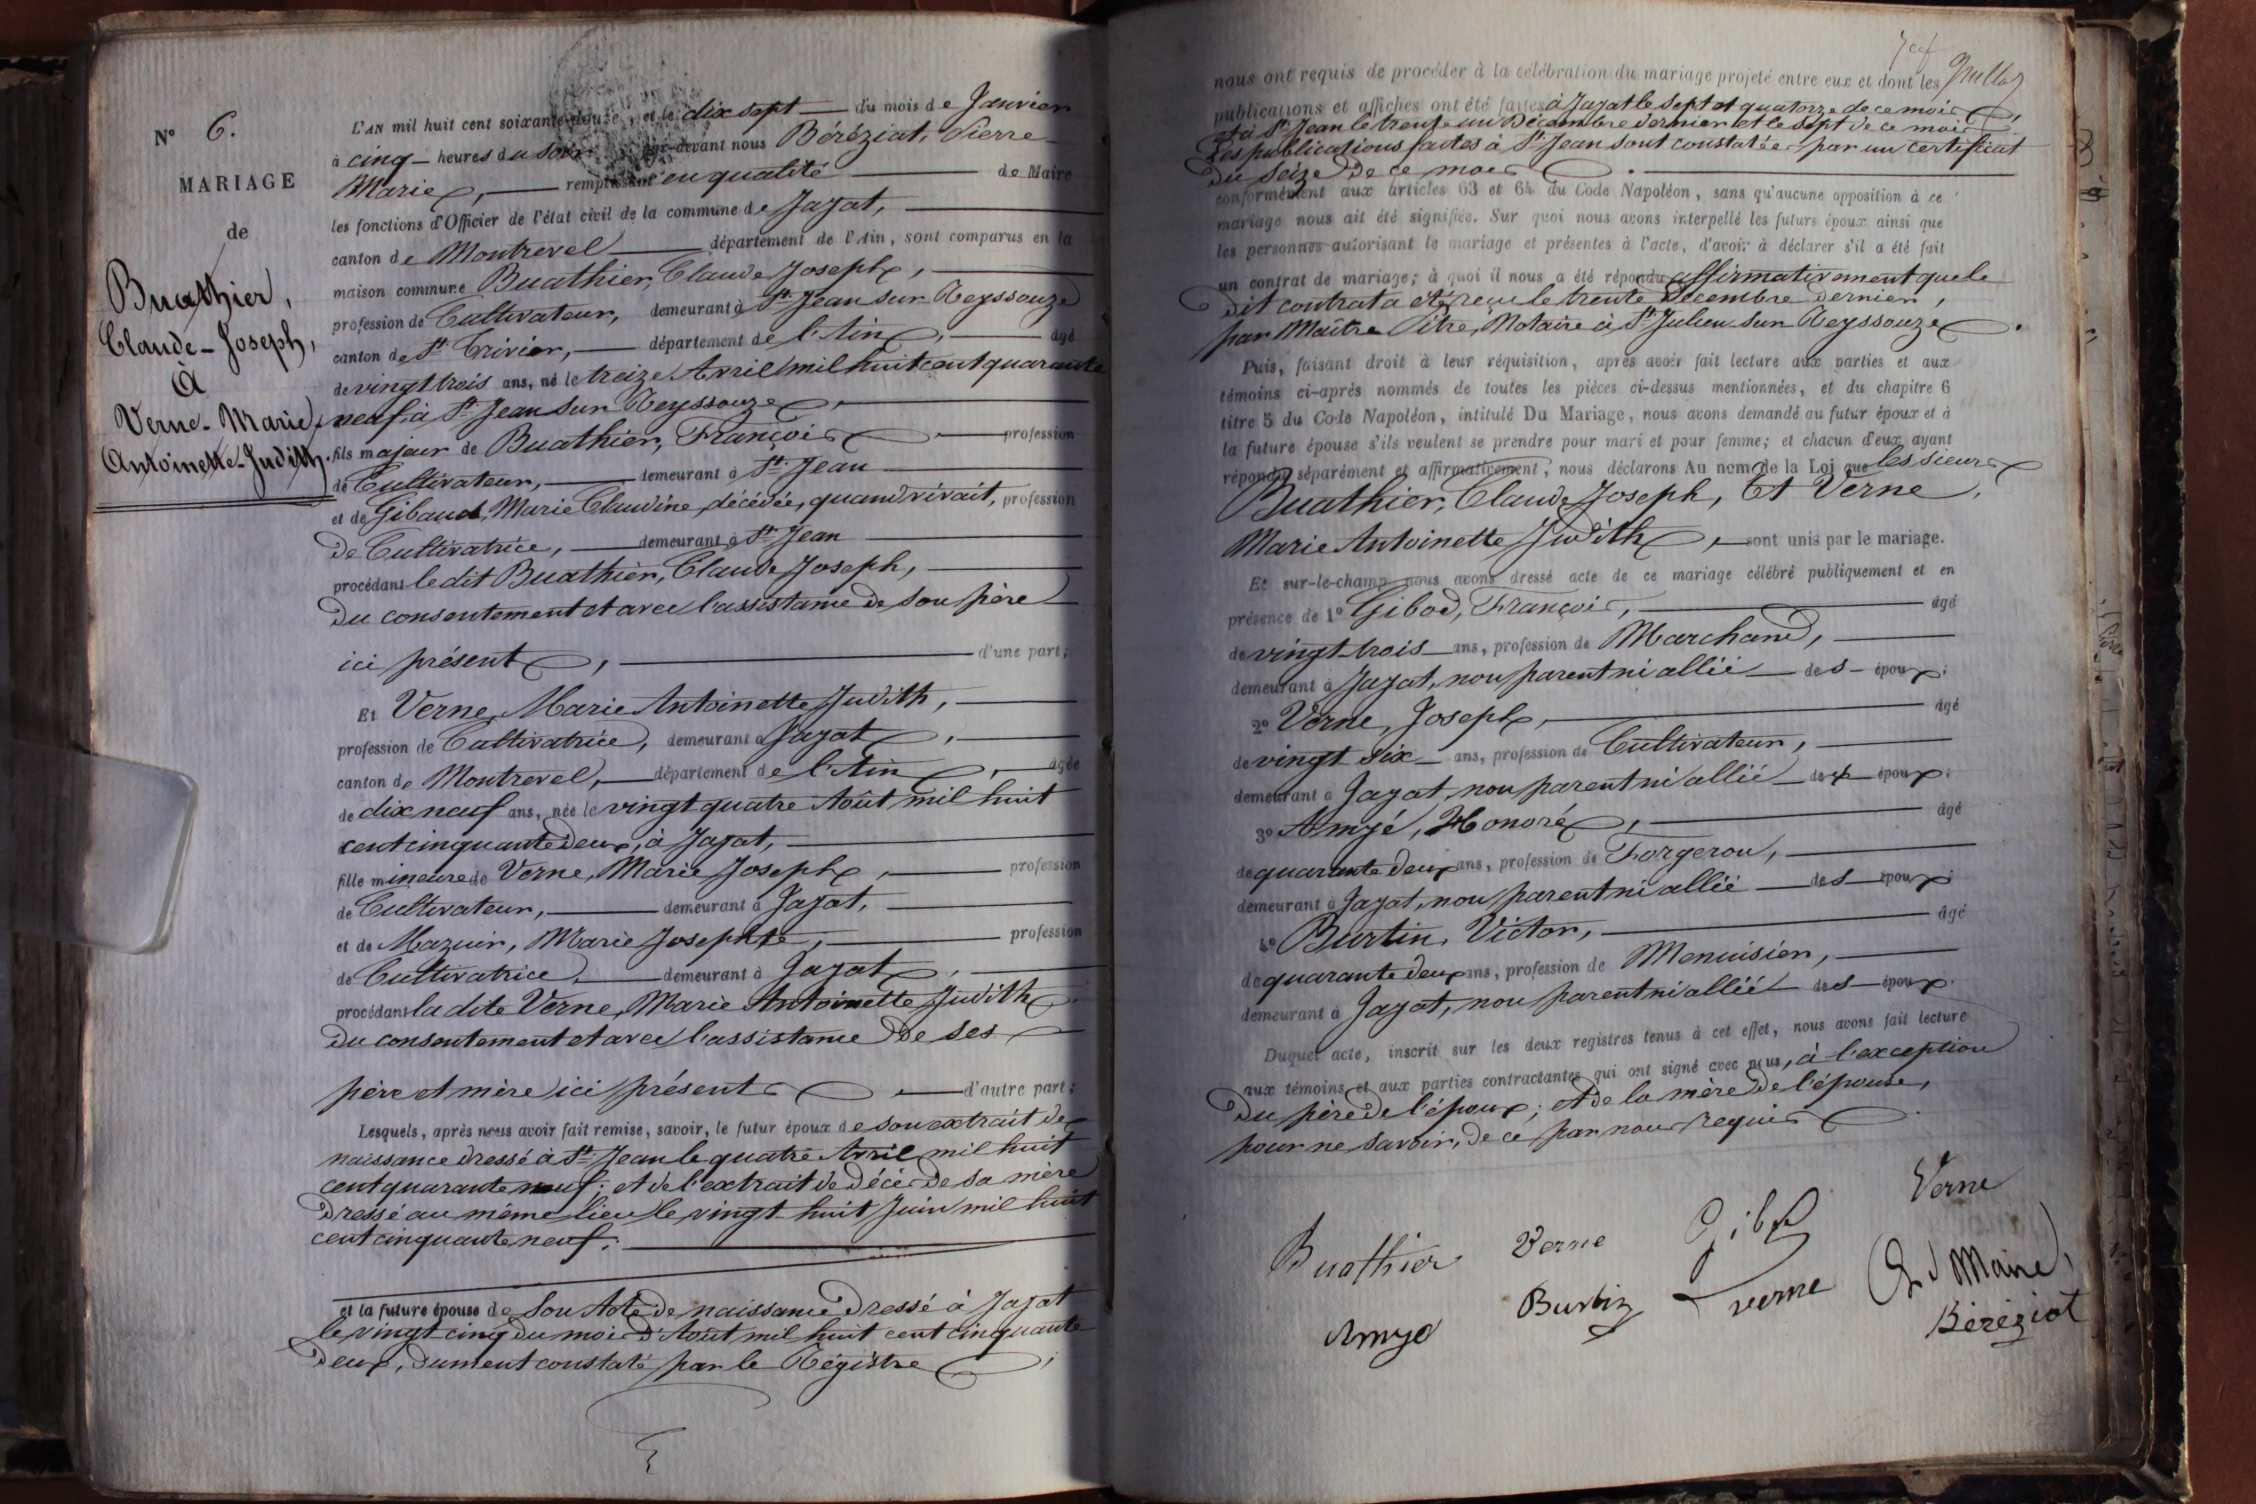 N° 6.
MARIAGE
de
Buathier,
Claude-Joseph,
à
Verne-Marie
Antoinette-Judith.
L'AN mil huit cent soixante-douze, et le dix sept du mois de Janvier
à cinq heures du soir par-devant nous Béréziat, Pierre
Marie, remplissant en qualité de Maire
les fonctions d'Officier de l'état civil de la commune de Jayat,
canton de Montrevel département de l'Ain, sont comparus en la
maison commune Buathier, Claude Joseph,
profession de Cultivateur, demeurant à St Jean sur Reyssouze
canton de St Trivier, département de l'Ain, âgé
de vingt trois ans, né le treize Avril mil huit cent quarante
neuf, à St Jean sur Reyssouze,
fils majeur de Buathier, François profession
de Cultivateur, demeurant à St Jean
et de Gibaud, Marie Claudine, décédée, quand vivait, profession
de Cultivatrice, demeurant à St Jean
procédant le dit Buathier, Claude Joseph,
du consentement et avec l'assistance de son père
ici présent, d'une part;
Et Verne, Marie Antoinette Judith,
profession de Cultivatrice, demeurant à Jayat,
canton de Montrevel, département de l'Ain, âgée
de dix neuf ans, née le vingt quatre Août mil huit
cent cinquante deux, à Jayat,
fille mineure de Verne, Marie Joseph, profession
de Cultivateur, demeurant à Jayat,
et de Mazuir, Marie Josephte, profession
de Cultivatrice, demeurant à Jayat,
procédant la dite Verne, Marie Antoinette Judith
du consentement et avec l'assistance de ses
père et mère ici présents d'autre part;
Lesquels, après nous avoir fait remise, savoir, le futur époux de son extrait de
naissance dressé à St Jean le quatre Avril mil huit
cent quarante neuf; et de l'extrait de décès de sa mère
dressé au même lieu le vingt-huit Juin mil huit
cent cinquante neuf;
et la future épouse de son Acte de naissance dressé à Jayat
le vingt cinq du mois d'Août mil huit cent cinquante
deux, dument constaté par le Régistre;
nous ont requis de procéder à la célébration du mariage projeté entre eux et dont les
publications et affiches ont été faites à Jayat le sept et quatorze de ce mois,
et à St Jean le trente un Décembre dernier et le sept de ce mois
Les publications faites à St Jean sont constatées par un certificat
du seize de ce mois.
conformément aux articles 63 et 64 du Code Napoléon, sans qu'aucune opposition à ce
mariage nous ait été signifiée. Sur quoi nous avons interpellé les futurs époux ainsi que
les personnes autorisant le mariage et présentes à l'acte, d'avoir à déclarer s'il a été fait
un contrat de mariage; à quoi il nous a été répondu affirmativement que le
dit contrat a été reçu le trente Décembre dernier,
par Maître Pitre, Notaire à St Julien sur Reyssouze.
Puis, faisant droit à leur réquisition, après avoir fait lecture aux parties et aux
témoins ci-après nommés de toutes les pièces ci-dessus mentionnées, et du chapitre 6
titre 5 du Code Napoléon, intitulé Du Mariage, nous avons demandé au futur époux et à
la future épouse s'ils veulent se prendre pour mari et pour femme; et chacun d'eux ayant
répondu séparément et affirmativement, nous déclarons Au nom de la Loi que les sieurs
Buathier, Claude Joseph, Et Verne,
Marie Antoinette Judith, sont unis par le mariage.
Et sur-le-champ nous avons dressé acte de ce mariage célébré publiquement et en
présence de 1° Gibod, François, âgé
de vingt-trois ans, profession de Marchand,
demeurant à Jayat, non parent ni allié des époux;
2° Verne, Joseph, âgé
de vingt six ans, profession de Cultivateur,
demeurant à Jayat, non parent ni allié des époux;
3° Amyé, Honoré, âgé
de quarante deux ans, profession de Forgeron,
demeurant à Jayat, non parent ni allié des époux
4° Burtin, Victor, âgé
de quarante deux ans, profession de Menuisier,
demeurant à Jayat, non parent ni allié des époux.
Duquel acte, inscrit sur les deux registres tenus à cet effet, nous avons fait lecture
aux témoins et aux parties contractantes qui ont signé avec nous, à l'exception
du père de l'époux; et de la mère de l'épouse,
pour ne savoir, de ce par nous requis.
Verne
Buathier Verne Gibod
Burtin Verne Le Maire,
Amyé Béréziat